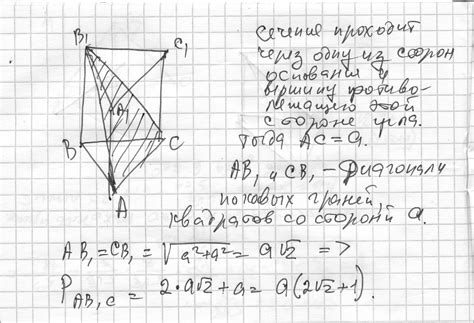 B₁
C₁
A₁
B
C
A
сечение проходит
через одну из сторон
основания и
вершину противо-
лежащего этой
стороне угла.
тогда AC=a.
AB₁ и CB₁ – диагонали
боковых граней,
квадратов со стороной a.
AB₁=CB₁=√a²+a² = a√2 =>
P AB₁C = 2·a√2+a = a(2√2+1).